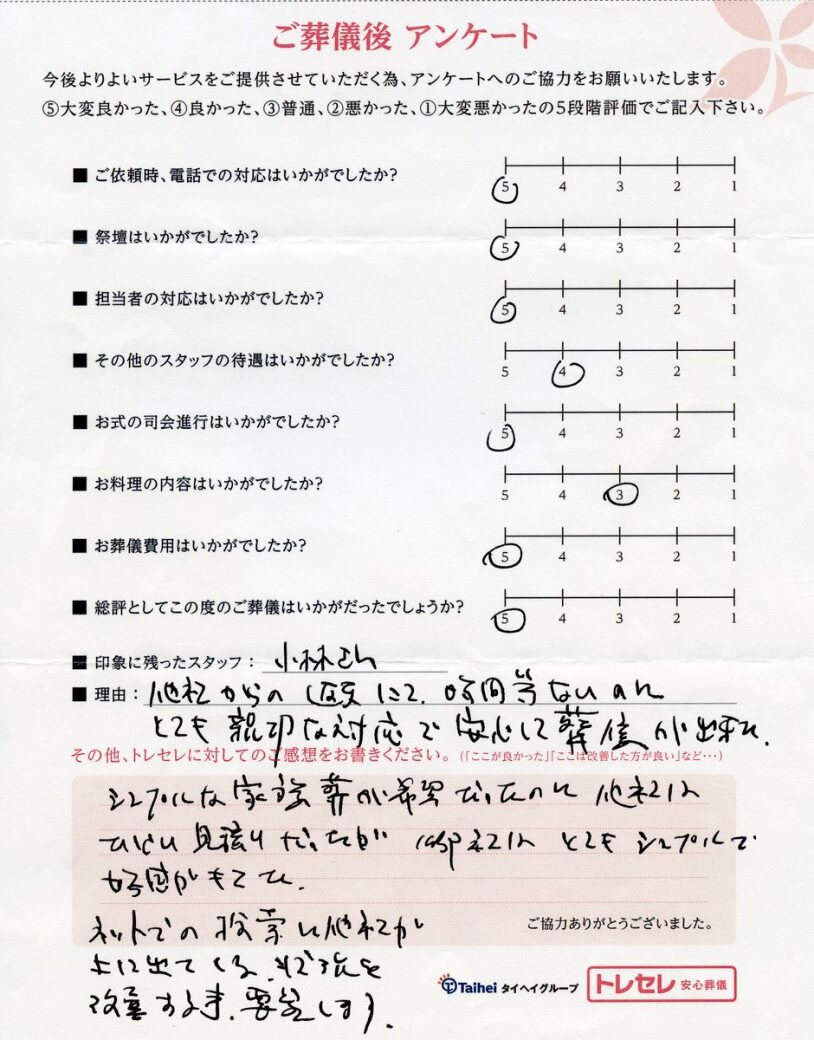 ご葬儀後 アンケート
今後よりよいサービスをご提供させていただく為、アンケートへのご協力をお願いいたします。
⑤大変良かった、④良かった、③普通、②悪かった、①大変悪かったの5段階評価でご記入下さい。
■ ご依頼時、電話での対応はいかがでしたか?
5 4 3 2 1
■ 祭壇はいかがでしたか?
5 4 3 2 1
■ 担当者の対応はいかがでしたか?
5 4 3 2 1
■ その他のスタッフの待遇はいかがでしたか?
5 4 3 2 1
■ お式の司会進行はいかがでしたか?
5 4 3 2 1
■ お料理の内容はいかがでしたか?
5 4 3 2 1
■ お葬儀費用はいかがでしたか?
5 4 3 2 1
■ 総評としてこの度のご葬儀はいかがだったでしょうか?
5 4 3 2 1
■ 印象に残ったスタッフ: 小林さん
■ 理由: 他社からの変更にて、時間等ないのに
とても親切な対応で安心して葬儀が出来た。
その他、トレセレに対してのご感想をお書きください。(「ここが良かった」「ここは改善した方が良い」など…)
シンプルな家族葬が希望だったのに他社は
ひどい見積りだったが 御社は とても シンプルで
好感がもてた。
ネットでの検索に他社が
上に出てくる、
改善する事、要望します。
ご協力ありがとうございました。
Taihei タイヘイグループ
トレセレ 安心葬儀